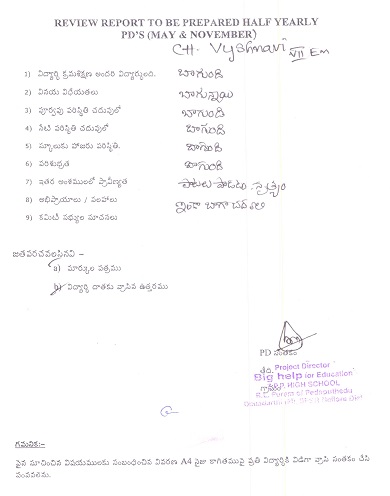 REVIEW REPORT TO BE PREPARED HALF YEARLY
PD'S (MAY & NOVEMBER)
CH. Vyshnavi VII Em
1) విద్యార్థి క్రమశిక్షణ అందరి విద్యార్థులది. బాగుంది
2) వినయ విధేయతలు బాగున్నాయి
3) పూర్వపు పరిస్థితి చదువులో బాగుంది
4) నేటి పరిస్థితి చదువులో బాగుంది
5) స్కూలుకు హాజరు పరిస్థితి. బాగుంది
6) పరిశుభ్రత బాగుంది
7) ఇతర అంశములలో ప్రావీణ్యత పాటలు పాడడం నృత్యం
8) అభిప్రాయాలు / సలహాలు ఇంకా బాగా చదవాలి
9) కమిటీ సభ్యుల సూచనలు
జతపరచవలసినవి :-
a) మార్కుల పత్రము
b) విద్యార్థి దాతకు వ్రాసిన ఉత్తరము
PD సంతకం
తేది. Project Director
Big help for Education
గ్రామం HIGH SCHOOL
గమనిక:-
పైన సూచించిన విషయములకు సంబంధించిన వివరణ A4 సైజు కాగితముపై ప్రతి విద్యార్థికి విడిగా వ్రాసి సంతకం చేసి
పంపవలెను.